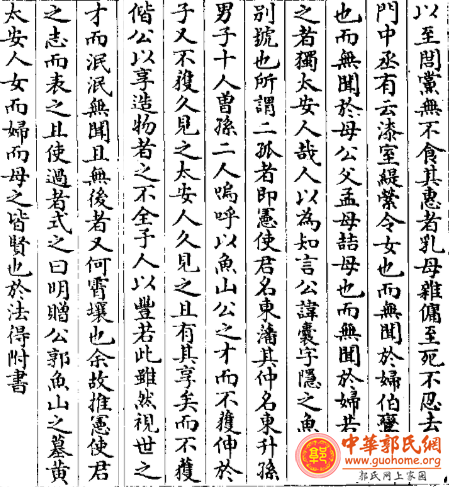 以至閭黨無不食其惠者乳母雜傭至死不忍去
門中丞有云漆室緹縈令女也而無聞於婦伯鸞
也而無聞於母公父孟母喆母也而無聞於婦
之者獨太安人哉人以為知言公諱囊字隱之魚
別號也所謂二孤者即憲使君名東藩其仲名東升孫
男子十人曾孫二人嗚呼以魚山公之才而不獲伸於
子又不獲久見之太安人久見之且有其享矣而不獲
偕公以享造物者之不全子人以豐若此雖然視世之
才而泯泯無聞且無後者又何霄壤也余故推憲使君
之志而表之且使過者式之曰明贈公郭魚山之墓黄
太安人女而婦而母之皆賢也於法得附書
中華郭氏網
www.guohome.org
郭氏网上家園